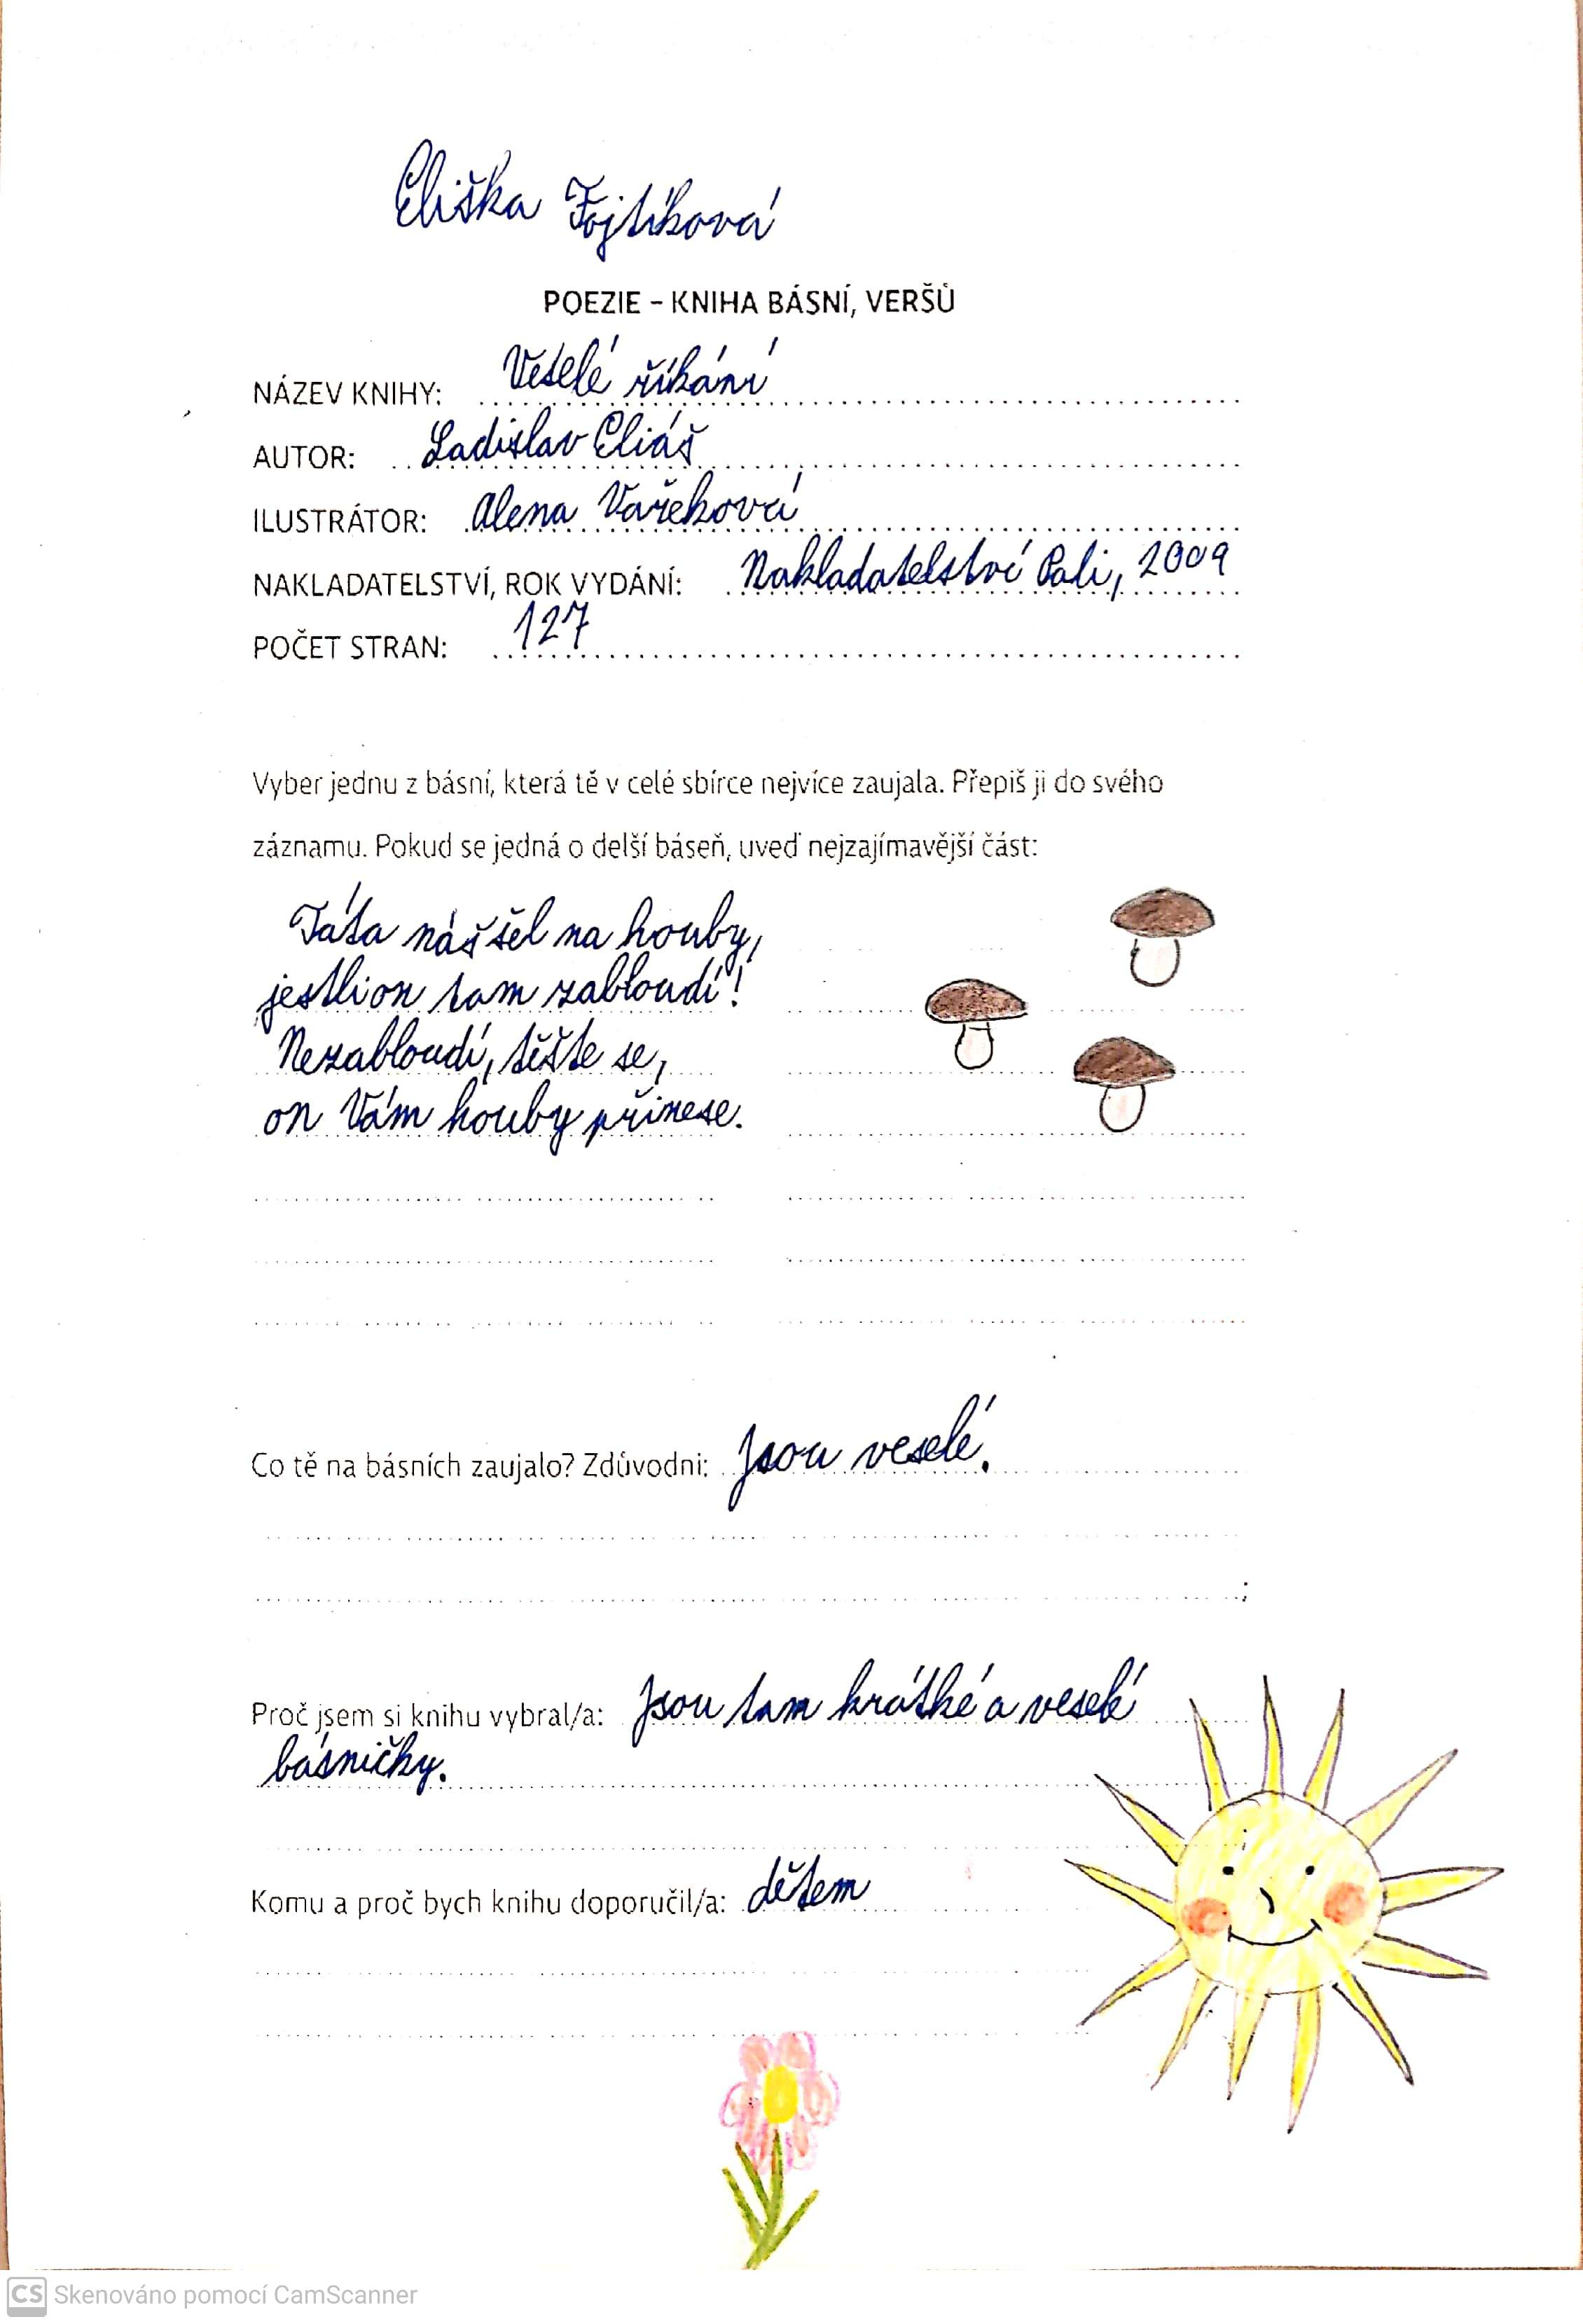 Eliška Fojtíková
POEZIE – KNIHA BÁSNÍ, VERŠŮ
NÁZEV KNIHY: Veselé říkání
AUTOR: Ladislav Eliáš
ILUSTRÁTOR: Alena Vařeková
NAKLADATELSTVÍ, ROK VYDÁNÍ: Nakladatelství Pali, 2009
POČET STRAN: 127
Vyber jednu z básní, která tě v celé sbírce nejvíce zaujala. Přepiš ji do svého
záznamu. Pokud se jedná o delší báseň, uveď nejzajímavější část:
Táta náš šel na houby,
jestlion tam zabloudí!
Nezabloudí, těšte se,
on Vám houby přinese.
Co tě na básních zaujalo? Zdůvodni: Jsou veselé.
Proč jsem si knihu vybral/a: Jsou tam krátké a veselé
básničky.
Komu a proč bych knihu doporučil/a: dětem
CS Skenováno pomocí CamScanner